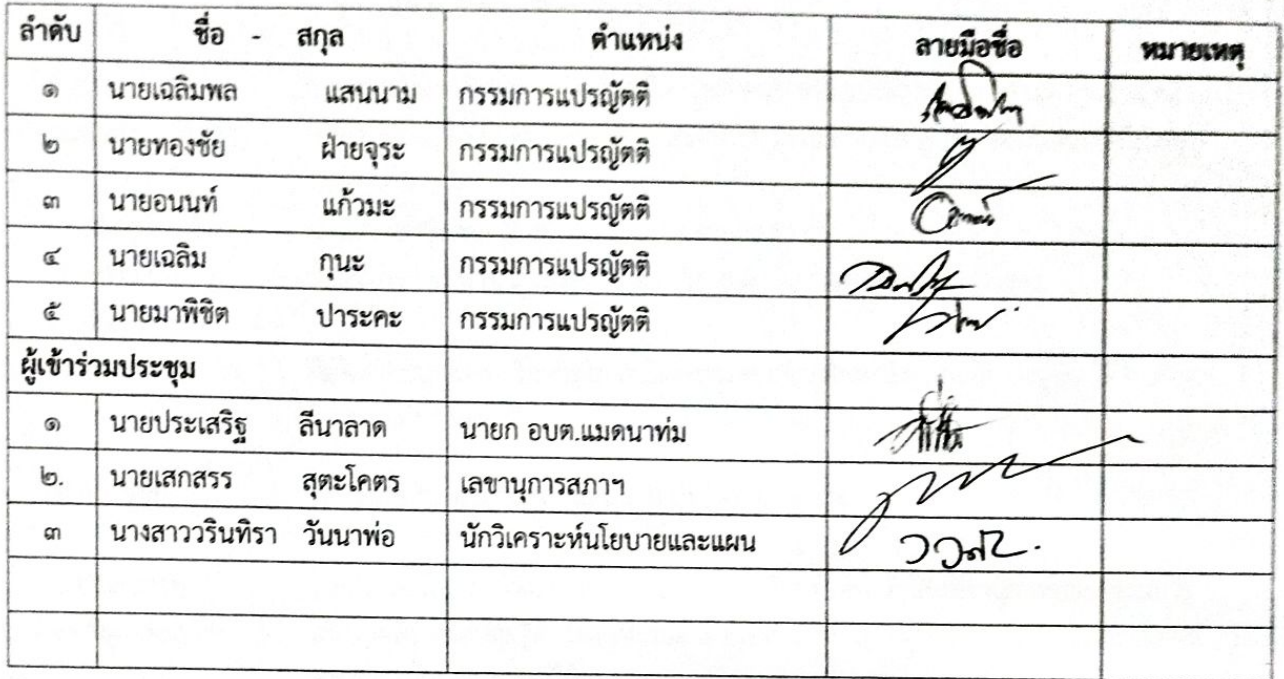 ลำดับ ชื่อ - สกุล ตำแหน่ง ลายมือชื่อ หมายเหตุ
๑ นายเฉลิมพล แสนนาม กรรมการแปรญัตติ
๒ นายทองชัย ฝ่ายจุระ กรรมการแปรญัตติ
๓ นายอนนท์ แก้วมะ กรรมการแปรญัตติ
๔ นายเฉลิม กุนะ กรรมการแปรญัตติ
๕ นายมาพิชิต ปาระคะ กรรมการแปรญัตติ
ผู้เข้าร่วมประชุม
๑ นายประเสริฐ ลีนาลาด นายก อบต.แมดนาท่ม
๒. นายเสกสรร สุตะโคตร เลขานุการสภาฯ
๓ นางสาววรินทิรา วันนาพ่อ นักวิเคราะห์นโยบายและแผน